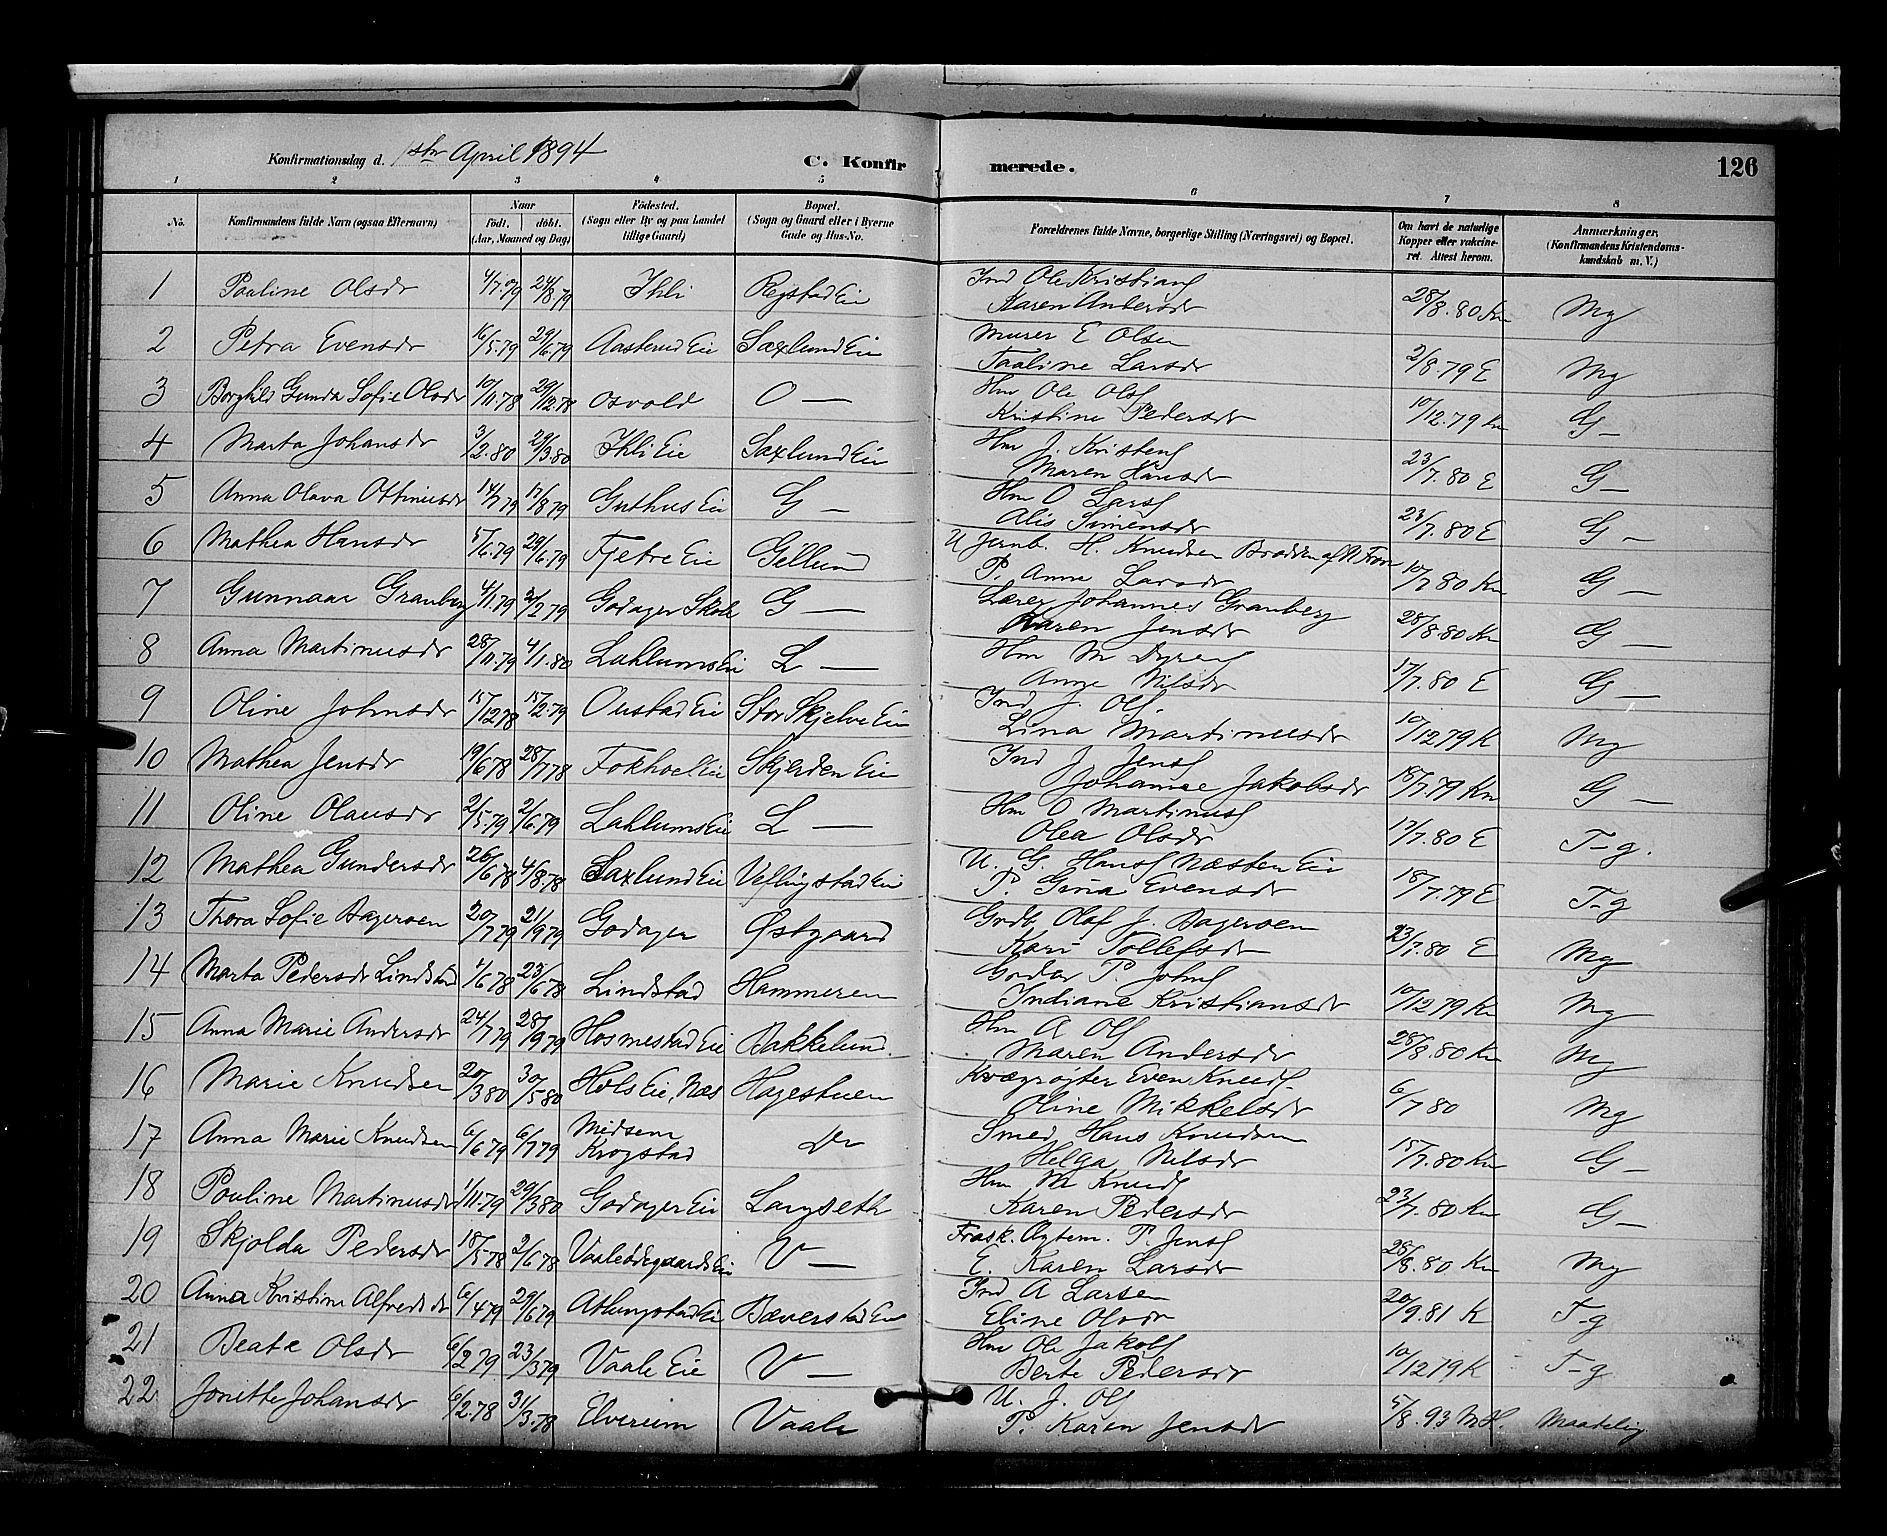 Konfirmationsdag d. 1ste April 1894
C. Konfir merede. 126
1 2 3 4 5 6 7 8
No. Konfirmandens fulde Navn (ogsaa Efternavn) Naar født. døbt. (Aar, Maaned og Dag) Fødested. (Sogn eller By og paa Landet tillige Gaard) Bopæl. (Sogn og Gaard eller i Byerne Gade og Hus-No. Forældrenes fulde Navne, borgerlige Stilling (Næringsvei) og Bopæl. Om havt de naturlige Kopper eller vakcineret. Attest herom. Anmærkninger. (Konfirmandens Kristendomskundskab m. V.)
1 Pauline Olsdr 4/7.79 24/8.79 Ihli Regstad Eie Ind Ole Kristians
Karen Andersdr 28/8.80 Kn Mg
2 Petra Evensdr 16/5.79 29/6.79 Aasterud Eie Saxlund Eie Murer E Olsen
Taaline Larsdr 2/8.79 E Mg
3 Borghild Gunda Sofie Olsdr 10/11.78 29/12.78 Osvold O — Hm Ole Ols
Kristine Pedersdr 10/12.79 Kn G —
4 Marta Johansdr 3/2.80 29/3.80 Ihli Eie Saxlund Eie Hm J. Kristens
Maren Hansdr 23/7.80 E G —
5 Anna Olava Ottinusdr 14/7.79 17/8.79 Guthus Eie G — Hm O Lars
Alis Simensdr 23/7.80 E G —
6 Mathea Hansdr 5/6.79 29/6.79 Fjetre Eie Gellund U Jernb. H. Knudsen Bradden af N Fron
P. Anne Larsdr 10/7 80 Kn G —
7 Gunnaar Granberg 4/1.79 2/2 79 Godager Skole G — Lærer Johannes Granberg
Karen Jensdr 28/8.80 Kn G —
8 Anna Martinusdr 28/11.79 4/1.80 Lahlums Eie L — Hm M Dyres
Anne Nilsdr 17/7.80 E G —
9 Oline Johnsdr 15/12 78 15/2.79 Oustad Eie Stor Skjelve Eie Ind J. Ols
Lina Martinusdr 10/12 79 K Mg
10 Mathea Jensdr 19/6 78 28/7 78 Fokhol Eie Skjerden Eie Ind J Jens
Johanne Jakobsdr 18/7.79 Kn G —
11 Oline Olausdr 2/5.79 2/6.79 Lahlums Eie L — Hm O Martinus
Olea Olsdr 17/7.80 E T-g.
12 Mathea Gundersdr 26/6 78 4/8.78 Saxlund Eie Veflingstad Eie U. G. Hans Næsten Eie
P. Gina Evensdr 18/7.79 E T-g
13 Thora Sofie Bageroen 20/7 79 21/9 79 Godager Østgaard Grdb. Olaf J. Bageroen
Kari Tollefsdr 23/7.80 E Mg
14 Marta Pedersdr Lindstad 1/6 78 23/6 78 Lindstad Hammeren P. Johns
Indiane Kristiansdr 10/12 79 Kn Mg
15 Anna Marie Andersdr 24/7 79 28/9 79 Hosmestad Eie Bakkelund. Hm A Ols
Maren Andersdr 28/8.80 Kn Mg
16 Marie Knudsen 20/3 80 30/5 80 Hols Eie, Næs Hagestuen Kvægrøjter Even Knuds
Oline Mikkelsdr 6/7 80 Mg
17 Anna Marie Knudsen 6/6 79 6/7 79 Midsem
Krogstad Do Smed Hans Knudsen
Helga Nilsdr 15/7.80 Kn G —
18 Pauline Martinusdr 1/11.79 29/3 80 Godager Eie Langseth Hm M Knuds
Karen Pedersdr 23/7.80 Kn G —
19 Skjolda Pedersdr 18/5 78 2/6 78 Vaaleødegaards Eie V — Frask. P. Jens
E. Karen Larsdr 28/8.80 Kn Mg
20 Anna Kristine Alfredsdr 6/4 79 29/6 79 Atlungstad Eie Bæverstad Eie Ind A Larsen
Eline Olsdr 20/9.81 K T-g
21 Beate Olsdr 6/2 79 23/3 79 Vaale Eie V — Hm Ole Jakobs
Berte Pedersdr 10/12 79 K T-g
22 Jonette Johansdr 6/2.78 31/3.78 Elverum Vaale U. J. Ols
P. Karen Jensdr 5/8.93 M.H. Maadelig